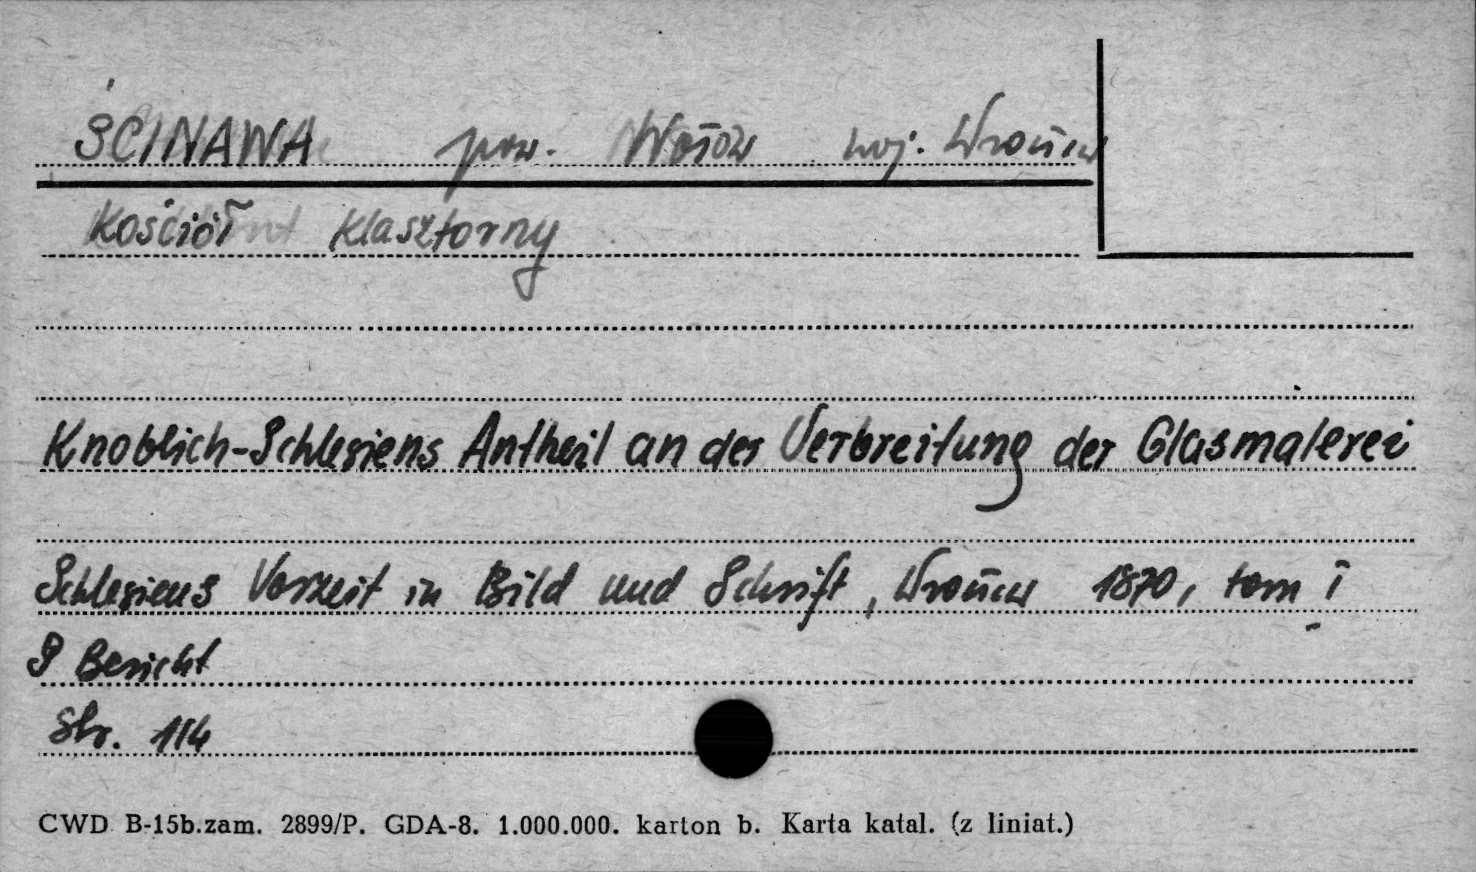 ŚCINAWA pow. Wołów woj. Wrocław
Kościół Klasztorny
Knoblich-Schlesiens Antheil an der Verbreitung der Glasmalerei
Schlesiens Vorzeit in Bild und Schrift, Wrocław 1870, tom I
9 Bericht
Str. 114
CWD B-15b.zam. 2899/P. GDA-8. 1.000.000. karton b. Karta katal. (z liniat.)